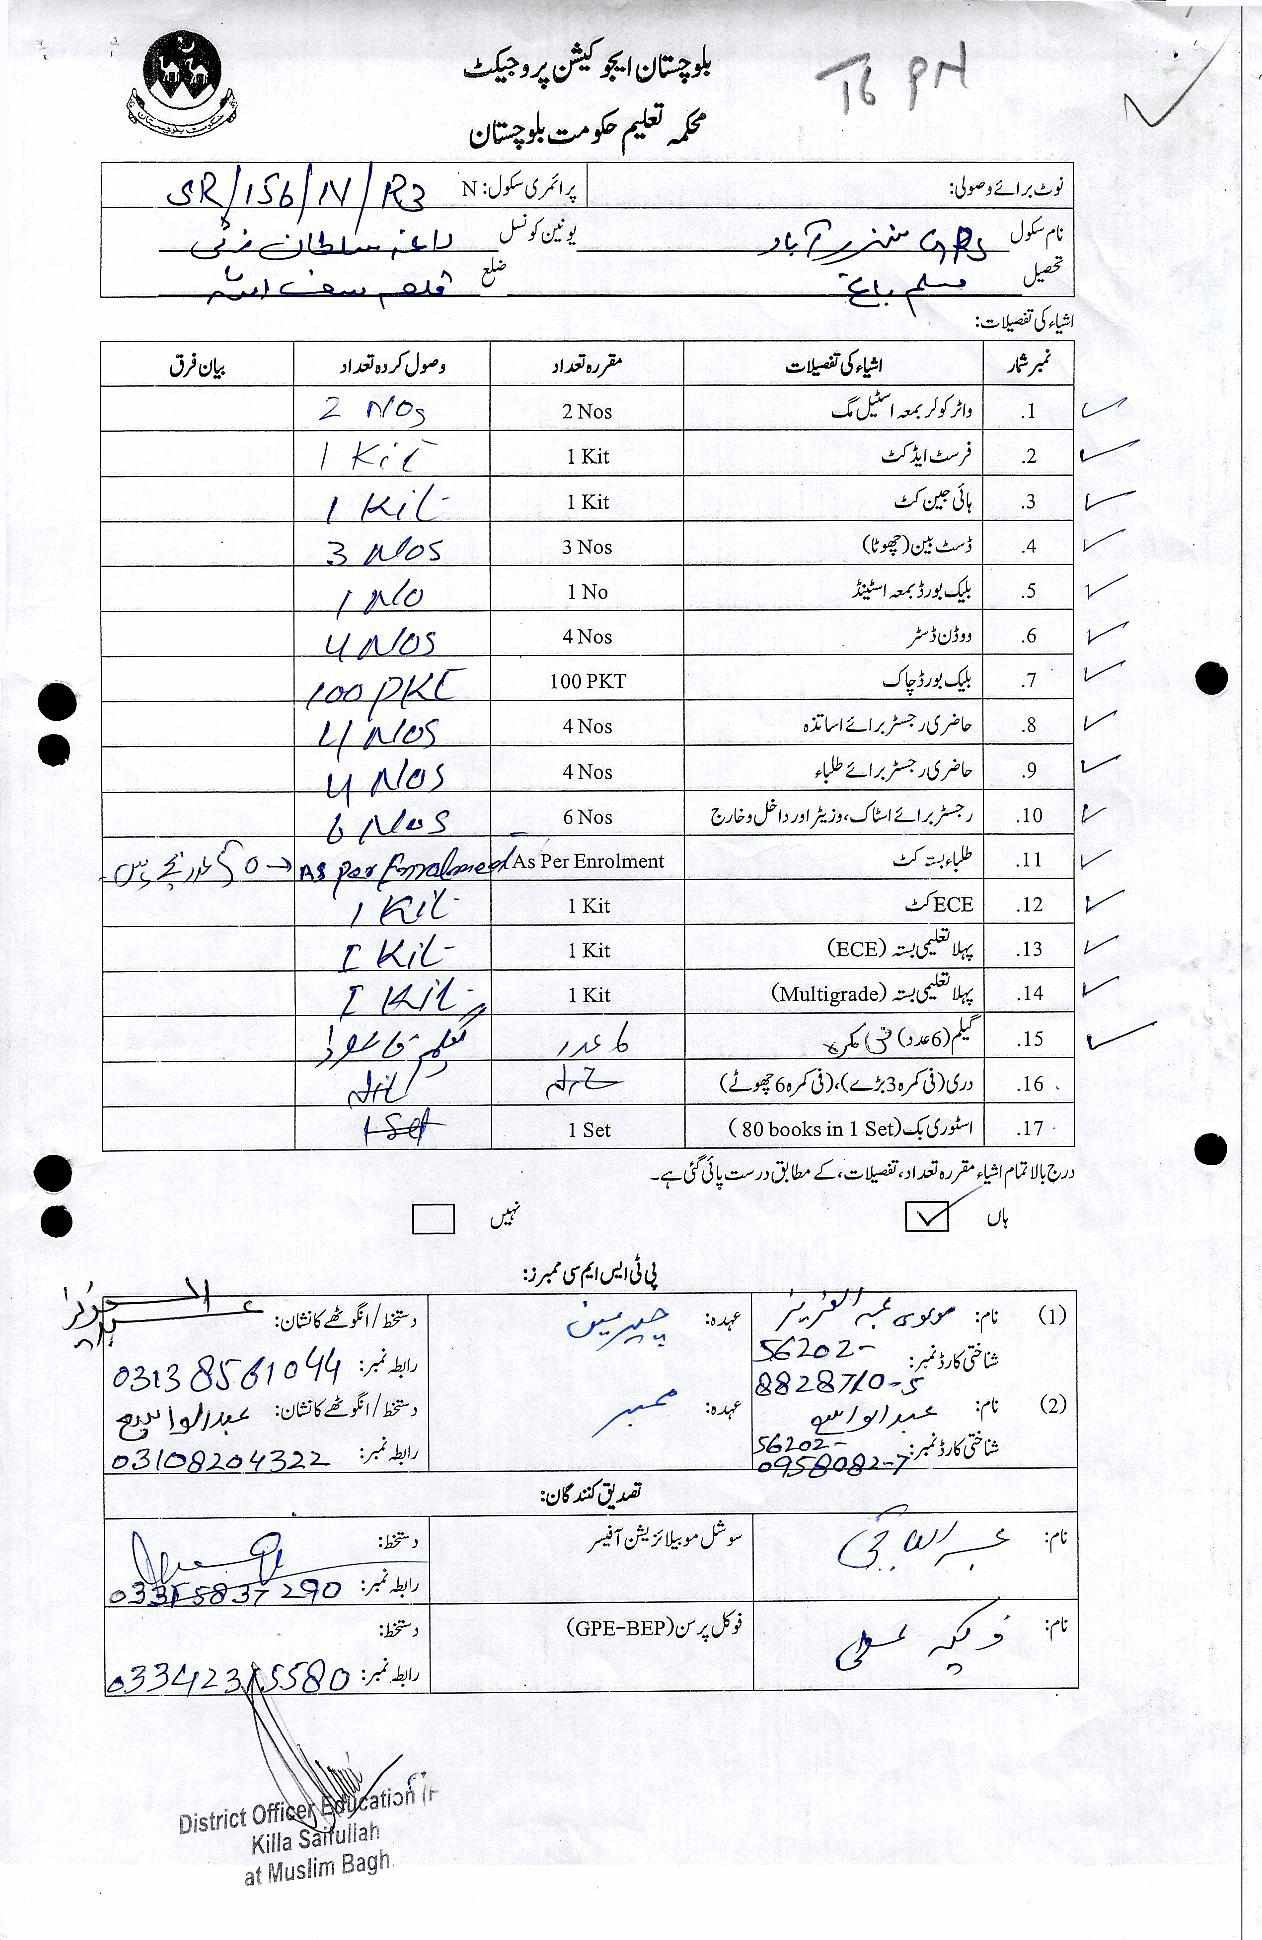 بلوچستان ایجوکیشن پروجیکٹ
T6 PN
محکمہ تعلیم حکومت بلوچستان
نوٹ برائے وصولی: پرائمری سکول: N SR/156/N/R3
نام سکول GPS آباد یونین کونسل سلطان زئی
تحصیل مسلم باغ ضلع قلعہ سیف اللہ
اشیاء کی تفصیلات:
نمبر شمار اشیاء کی تفصیلات مقررہ تعداد وصول کردہ تعداد بیان فرق
1. واٹر کولر بمعہ اسٹیل مگ 2 Nos 2 Nos
2. فرسٹ ایڈ کٹ 1 Kit 1 Kit
3. ہائی جین کٹ 1 Kit 1 Kit
4. ڈسٹ بین (چھوٹا) 3 Nos 3 Nos
5. بلیک بورڈ بمعہ اسٹینڈ 1 No 1 No
6. ووڈن ڈسٹر 4 Nos 4 Nos
7. بلیک بورڈ چاک 100 PKT 100 PKT
8. حاضری رجسٹر برائے اساتذہ 4 Nos 4 Nos
9. حاضری رجسٹر برائے طلباء 4 Nos 4 Nos
10. رجسٹر برائے اسٹاک، وزیٹر اور داخل و خارج 6 Nos 6 Nos
11. طلباء بستہ کٹ As Per Enrolment As per Enrolment
12. ECE کٹ 1 Kit 1 Kit
13. پہلا تعلیمی بستہ (ECE) 1 Kit 1 Kit
14. پہلا تعلیمی بستہ (Multigrade) 1 Kit 1 Kit
15. گیلم (6 عدد) فی کمرہ 6 عدد
16. دری (فی کمرہ 3 بڑے)، (فی کمرہ 6 چھوٹے) Nil
17. اسٹوری بک (80 books in 1 Set) 1 Set 1 Set
درج بالا تمام اشیاء مقررہ تعداد، تفصیلات، کے مطابق درست پائی گئی ہے۔
ہاں نہیں
پی ٹی ایس ایم سی ممبرز:
(1) نام: مولوی عبدالعزیز عہدہ: چیرمین دستخط/انگوٹھے کا نشان:
شناختی کارڈ نمبر: 56202-8828710-5 رابطہ نمبر: 03138561044
(2) نام: عبدالواسع عہدہ: ممبر دستخط/انگوٹھے کا نشان: عبدالواسع
شناختی کارڈ نمبر: 56202-0958082-7 رابطہ نمبر: 03108204322
تصدیق کنندگان:
نام: سوشل موبیلائزیشن آفیسر دستخط:
رابطہ نمبر:
نام: فوکل پرسن (GPE-BEP) دستخط:
رابطہ نمبر:
District Officer Education
Killa Saifullah
at Muslim Bagh.